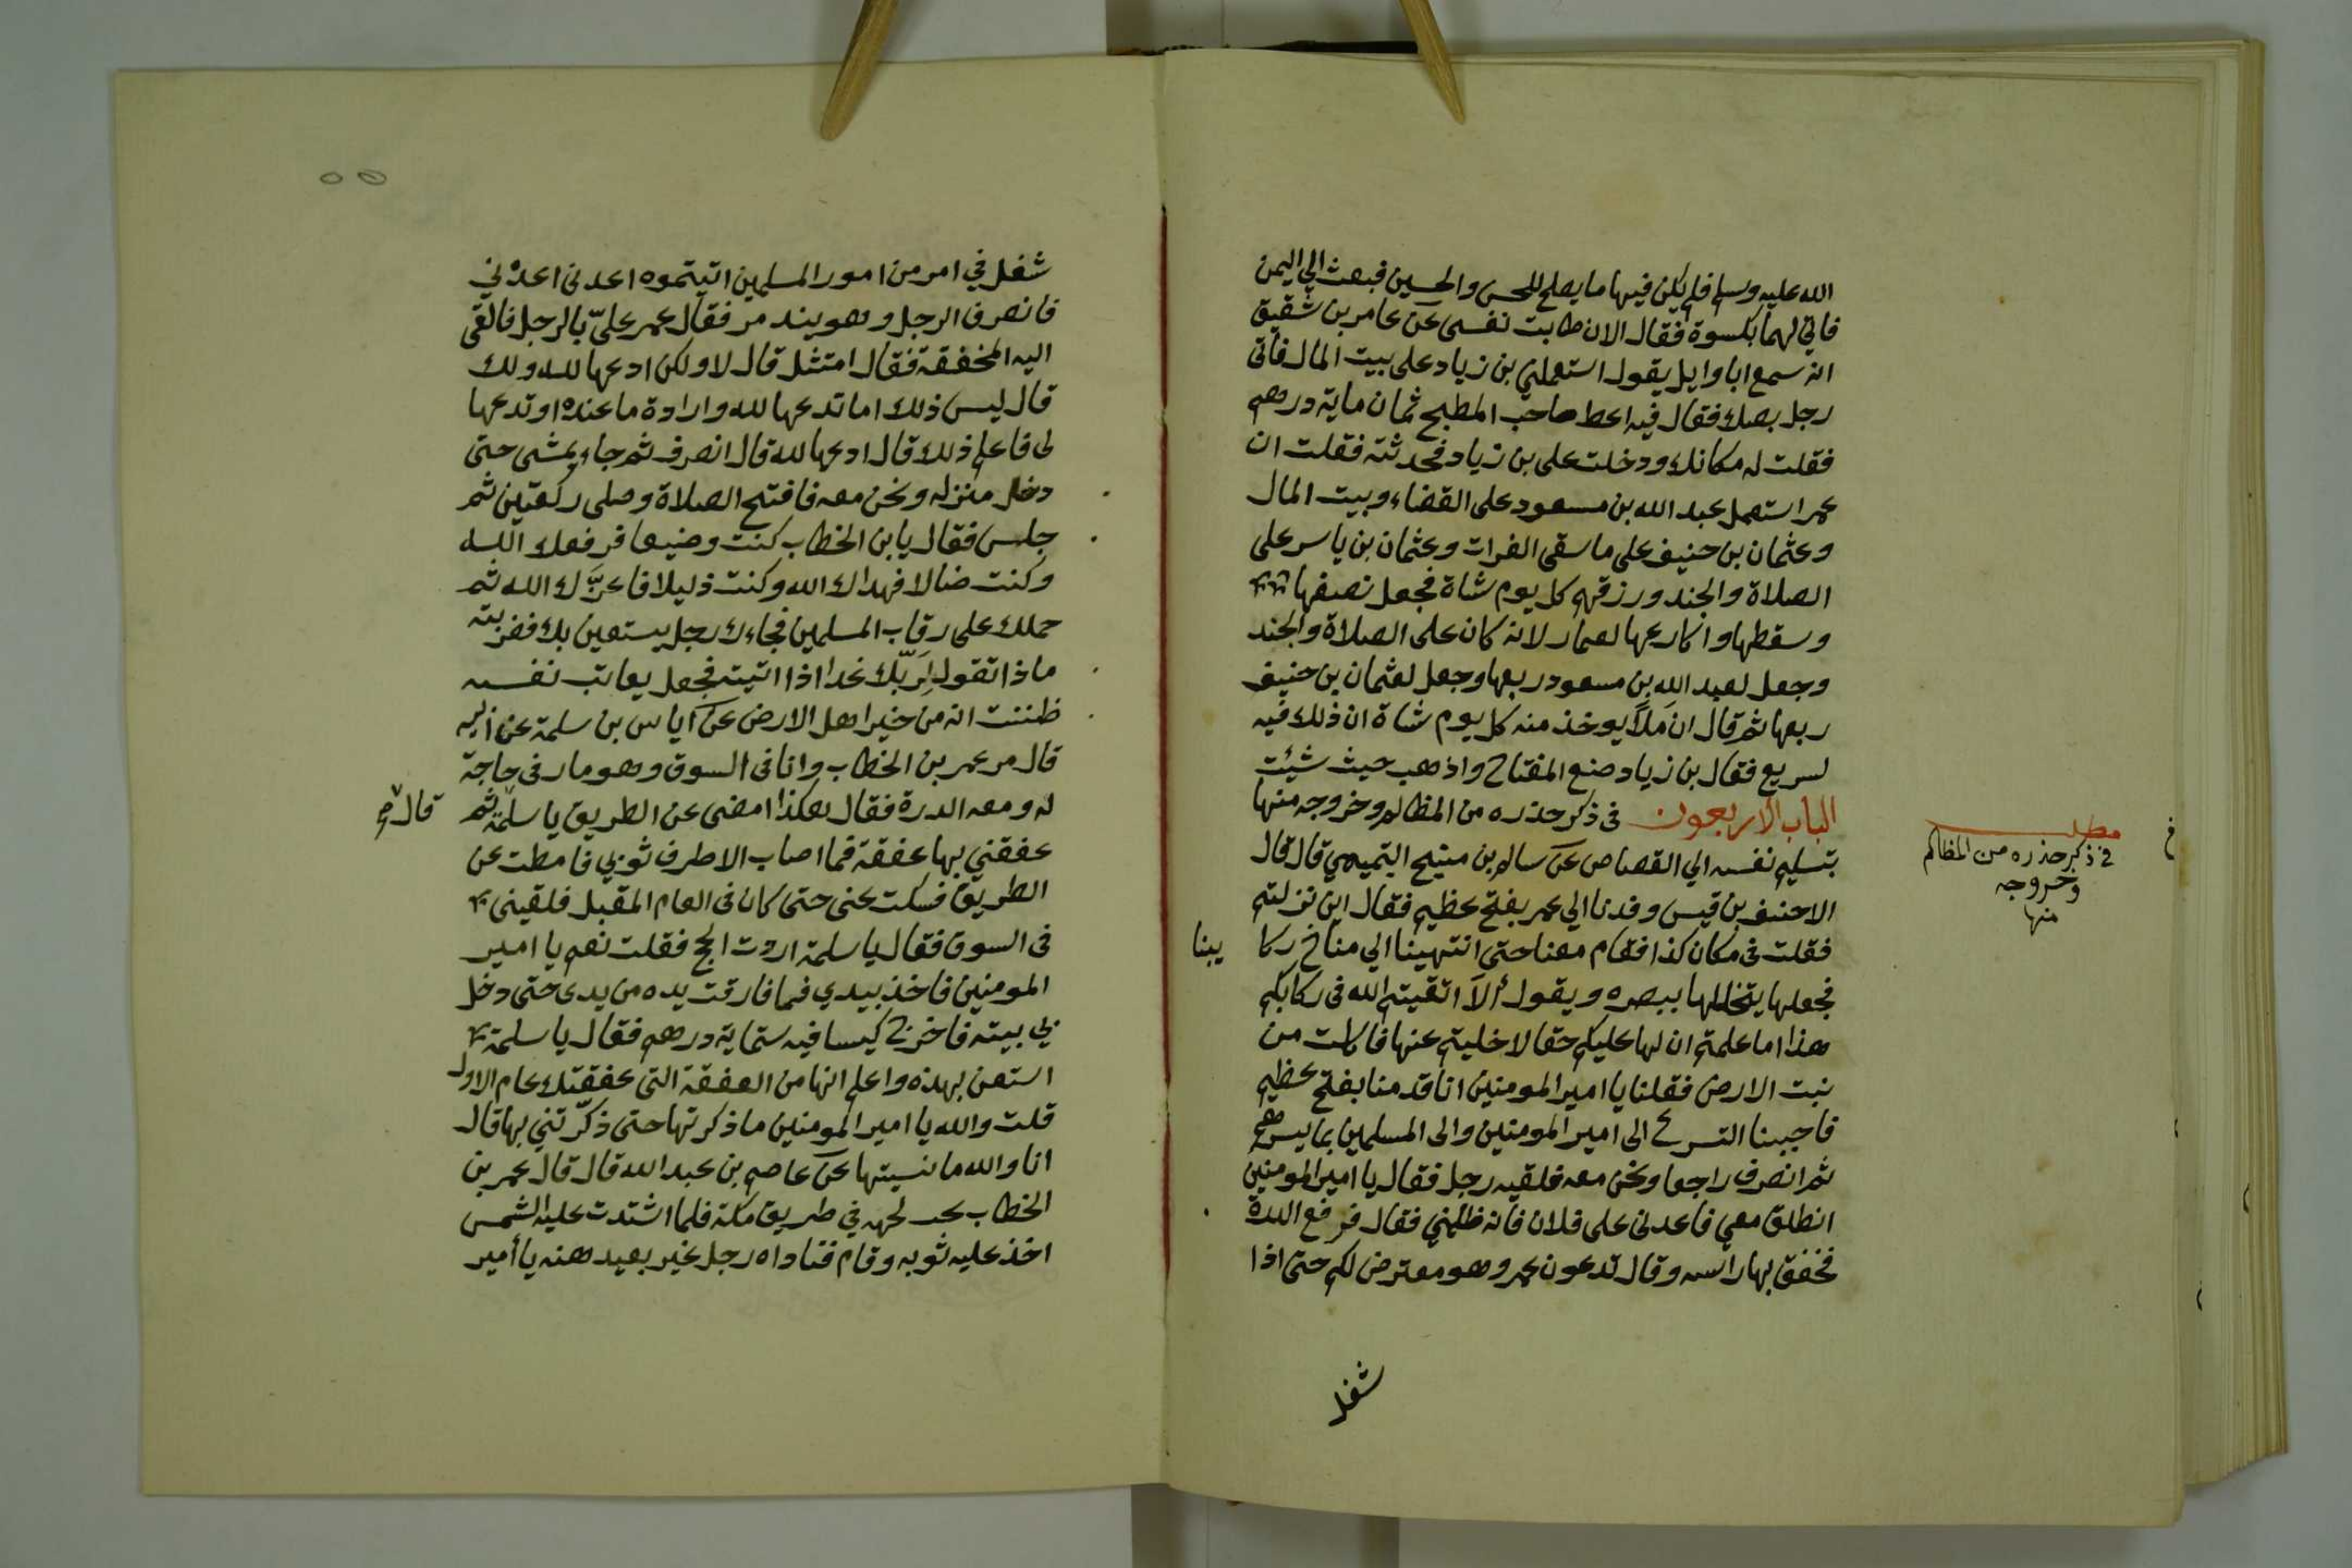 الله عليه وسلم فلم يكن فيها ما يصلح للحسن والحسين فبعث الي اليمن
فاتي لهما بكسوة فقال الان طابت نفسى عن عامر بن شقيق
انه سمع ابا وايل يقول استعملني بن زياد على بيت المال فاتى
رجل بصك فقال فيه اعط صاحب المطبخ ثمان ماية درهم
فقلت له مكانك ودخلت على بن زياد فحدثته فقلت ان
عمر استعمل عبد الله بن مسعود على القضاء وبيت المال
وعثمان بن حنيف على ما سقى الفرات وعثمان بن ياسر على
الصلاة والجند ورزقهم كل يوم شاة فجعل نصفها
وسقطها واكارعها لعمار لانه كان على الصلاة والجند
وجعل لعبد الله بن مسعود ربعها وجعل لعثمان بن حنيف
ربعها ثم قال ان مَلاً يوخذ منه كل يوم شاة ان ذلك فيه
لسريع فقال بن زياد ضع المفتاح واذهب حيث شئت
الباب الاربعون فى ذكر حذره من المظالم وخروجه منها
بتسليم نفسه الي القصاص عن سالم بن منيح التميمي قال قال
الاحنف بن قيس وفدنا الي عمر بفتح عظيم فقال اين نزلتم
فقلت فى مكان كذا فقام معنا حتى انتهينا الي مناخ ركا يبنا
فجعلها يتخللها ببصره ويقول ألا اتقيتم الله فى ركابكم
هذا اما علمتم ان لها عليكم حقا لا خليتم عنها فاكلت من
نبت الارض فقلنا يا امير المومنين انا قدمنا بفتح عظيم
فاحببنا التسرع الى امير المومنين والى المسلمين بما يسرهم
ثم انصرف راجعا ونحن معه فلقيه رجل فقال يا امير المومنين
انطلق معي فاعدنى على فلان فانه ظلمني فقال فرفع الدرة
فخفق بها راسه وقال تدعون عمر وهو معترض لكم حتى اذا
شغل
مطلب
في ذكر حذره من المظالم
وخروجه
منها
شغل في امر من امور المسلمين اتيتموه اعدنى اعدْني
فانصرف الرجل وهو يندمر فقال عمر عليّ بالرجل فالقى
اليه المخفقة فقال امتثل قال لا ولكن ادعها لله ولك
قال ليس ذلك اما تدعها لله وارادة ما عنده او تدعها
لى فاعلم ذلك قال ادعها لله قال انصرف ثم جاء يمشى حتى
دخل منزله ونحن معه فافتتح الصلاة وصلى ركعتين ثم
جلس فقال يا بن الخطاب كنت وضيعا فرفعك الله
وكنت ضالا فهداك الله وكنت ذليلا فاعزَّك الله ثم
حملك على رقاب المسلمين فجاءك رجل يستعين بك فضربته
ماذا تقول لِرَبّك غدا اذا اتيته فجعل يعاتب نفسه
ظننت انه من خير اهل الارض عن اياس بن سلمة عن ابيه
قال مر عمر بن الخطاب وانا فى السوق وهو مار فى حاجة
له ومعه الدرة فقال هكذا امضى عن الطريق يا سلمة ثم
قال
عفقني بها عفقة فما اصاب الا طرف ثوبي فامطت عن
الطريق فسكت عنى حتى كان فى العام المقبل فلقينى
فى السوق فقال يا سلمة اردت الحج فقلت نعم يا امير
المومنين فاخذ بيدي فما فارقت يده من يدى حتى دخل
بي بيته فاخرج كيسا فيه ستماية درهم فقال يا سلمة
استعن بهذه واعلم انها من العفقة التى عفقتك عام الاول
قلت والله يا امير المومنين ما ذكرتها حتى ذكّرتني بها قال
انا والله ما نسيتها عن عاصم بن عبد الله قال قال عمر بن
الخطاب في طريق مكة فلما اشتدت عليه الشمس
اخذ عليه ثوبه وقام فناداه رجل غير بعيد منه يا أمير